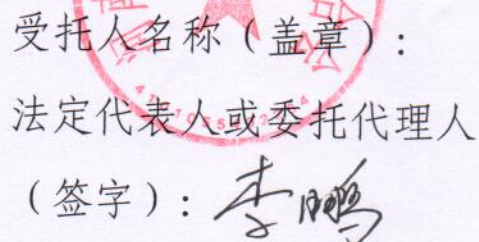 受托人名称（盖章）：
法定代表人或委托代理人
（签字）：李鹏